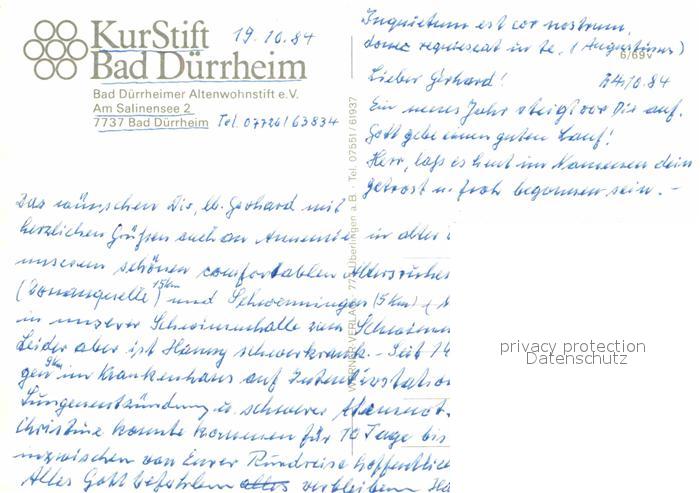 KurStift
Bad Dürrheim
19.10.84
Bad Dürrheimer Altenwohnstift e.V.
Am Salinensee 2
7737 Bad Dürrheim Tel. 07726/63834
Inquietum est cor nostrum,
donec requiescat in te. (Augustinus)
6/69v
Lieber Gerhard! 24.10.84
Ein neues Jahr steigt vor Dir auf.
Gott gebe einen guten Lauf!
Herr, lass es heut im Namen dein
getrost u. froh begonnen sein. -
Das wünschen Dir, lb. Gerhard mit
herzlichen Grüßen auch an Annemie in alter
unserem schönen comfortablen Altersruhes
(Donauquelle) 15km und Schwenningen (5 km)
in unserer Schwimmhalle zum Schwimm
Leider aber ist Hanny schwerkrank. - Seit 14
gen 9km im Krankenhaus auf Intensivstation
Lungenentzündung u. schwerer Atemnot.
Christine konnte kommen für 10 Tage bis
inzwischen von Eurer Rundreise hoffentlich
Alles Gott befohlen alles verbleiben
WERNER-VERLAG 777 Überlingen a.B. · Tel. 07551/61937
privacy protection
Datenschutz